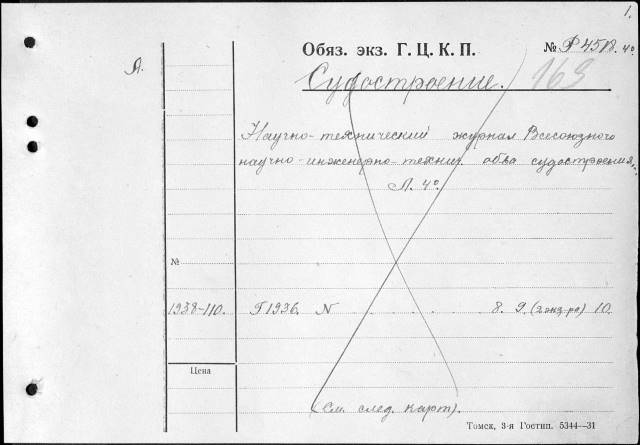 1.
Обяз. экз. Г. Ц. К. П. № Р 4518. 4°
Л.
Судостроение. 163
Научно-технический журнал Всесоюзного
научно-инженерно-технич. обва судостроения.
Л. 4°.
№
1938-110. Г 1936. N . . . . . 8. 9. (2 экз-ра) 10.
Цена
(См. след. карт).
Томск, 3-я Гостип. 5344—31